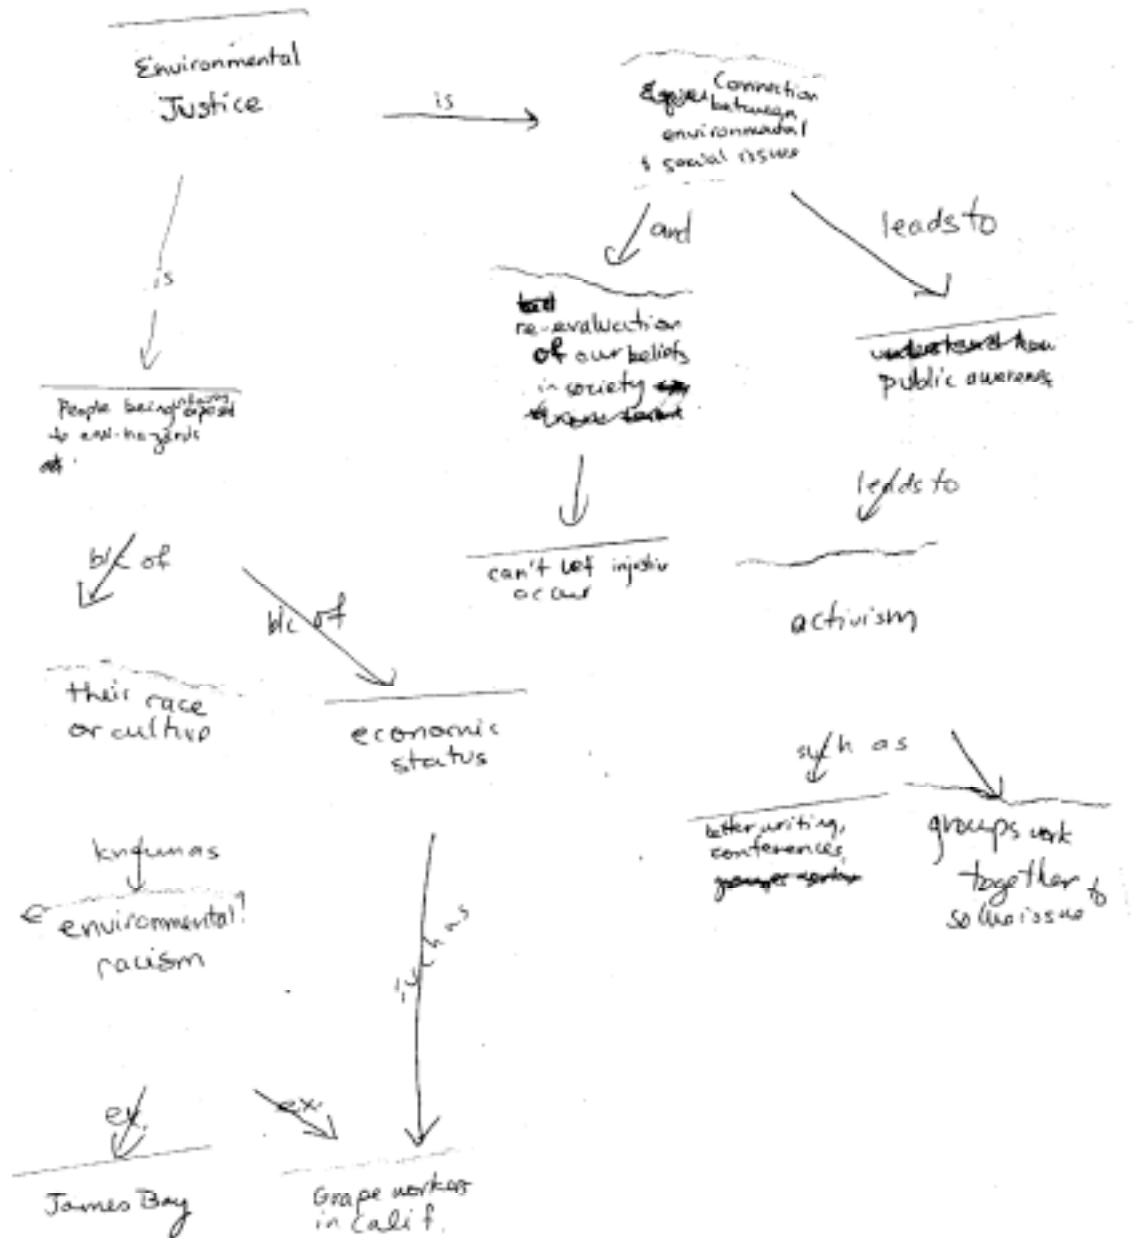 Environmental
Justice
is
Connection
between
environmental
& social issues
and
leads to
is
re-evaluation
of our beliefs
in society
public awareness
People being exposed
to env. hazards
leads to
b/c of
can't let
occur
b/c of
activism
their race
or culture
economic
status
such as
letter writing,
conferences,
groups work
together to
solve issue
known as
environmental
racism
such as
ex.
ex.
James Bay
Grape workers
in Calif.